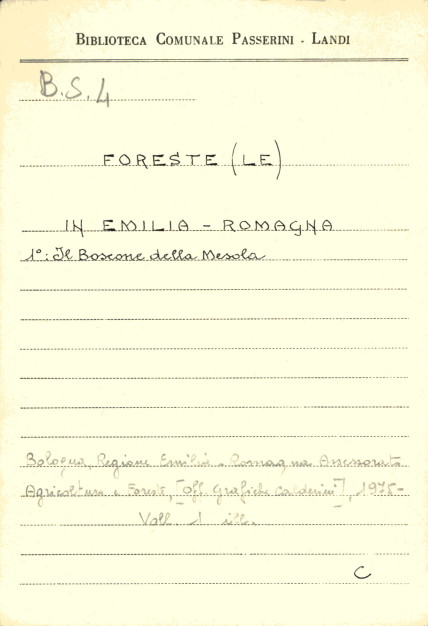 BIBLIOTECA COMUNALE PASSERINI - LANDI
B.S.4
FORESTE (LE)
IN EMILIA - ROMAGNA
1°: Il Boscone della Mesola
Bologna, Regione Emilia - Romagna Assessorato
Agricoltura e Foreste, [Off. Grafiche Calderini], 1975-
Voll. 1 ill.
C